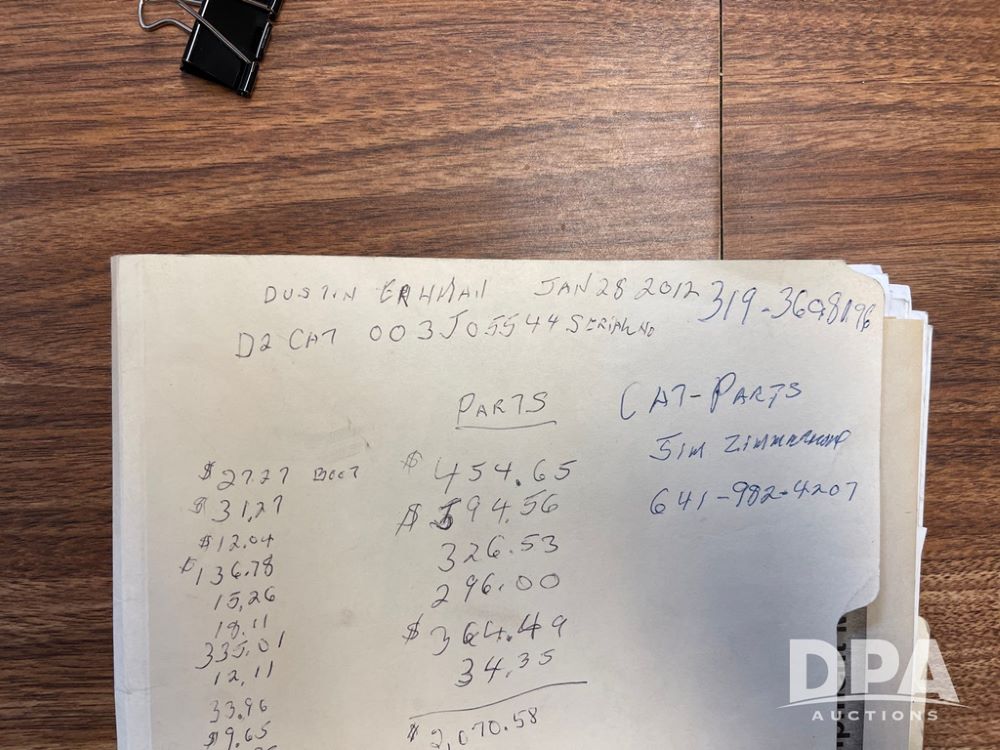 DUSTIN JAN 28 2012 319-3698196
D2 CAT 003J05544 SERIAL NO
PARTS
CAT-PARTS
JIM
641-982-4207
$454.65
$594.56
326.53
296.00
$364.49
34.35
$2,070.58
$27.27 BOOT
$31.27
$12.04
$136.78
15.26
18.11
335.01
12.11
33.96
$9.65
DPA
AUCTIONS